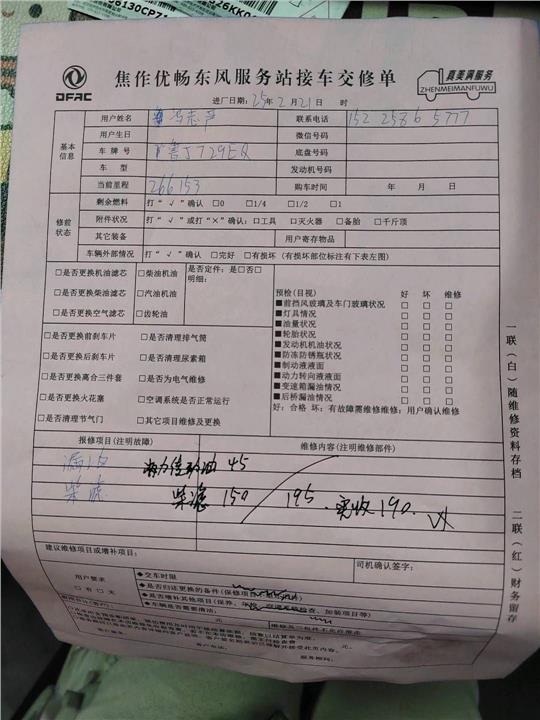 6130CP7
26KK0
DFAC
焦作优畅东风服务站接车交修单
真美满服务
ZHENMEIMANFUWU
进厂日期：25年2月21日 时
基本信息
用户姓名 冯志芦 联系电话 152 258 6 5777
用户生日 微信号码
车牌号 鲁J729EQ 底盘号码
车型 发动机号码
当前里程 266153 购车时间 年 月 日
修前状态
剩余燃料 打“√”确认 □0 □1/4 □1/2 □1
附件状况 打“√”或打“×”确认：□工具 □灭火器 □备胎 □千斤顶
其它装备 用户寄存物品
车辆外部情况 打“√”确认 □完好 □有损坏（有损坏部位标注有下表左图）
□是否更换机油滤芯 □柴油机油 是否定件：是□否□
明细：
□是否更换柴油滤芯 □汽油机油
□是否更换空气滤芯 □齿轮油
预检(目视) 好 坏 维修
■前挡风玻璃及车门玻璃状况 □ □ □
■灯具情况 □ □ □
■油量状况 □ □ □
■轮胎状况 □ □ □
■发动机机油状况 □ □ □
■防冻防锈瓶状况 □ □ □
■制动液液面 □ □ □
■动力转向液液面 □ □ □
■变速箱漏油情况 □ □ □
■后桥漏油情况 □ □ □
好：合格 坏：有故障需维修维修：用户确认维修
□是否更换前刹车片 □是否清理排气筒
□是否更换后刹车片 □是否清理尿素箱
□是否更换离合三件套 □是否为电气维修
□是否更换火花塞 □空调系统是否正常运行
□是否清理节气门 □其它项目维修及更换
报修项目(注明故障) 维修内容(注明维修部件)
助力油 45
柴滤
柴滤 150 195. 实收190.
建议维修项目或增补项目： 司机确认签字：
用户要求
□有 □无
◆交车时限
◆是否归还更换的备件(保修项
◆是否增补其他项目(保养、 检查、加装项目等)
◆车辆是否需要清洁：
元。
服务顾问：
一联（白）随维修资料存档
二联（红）财务留存